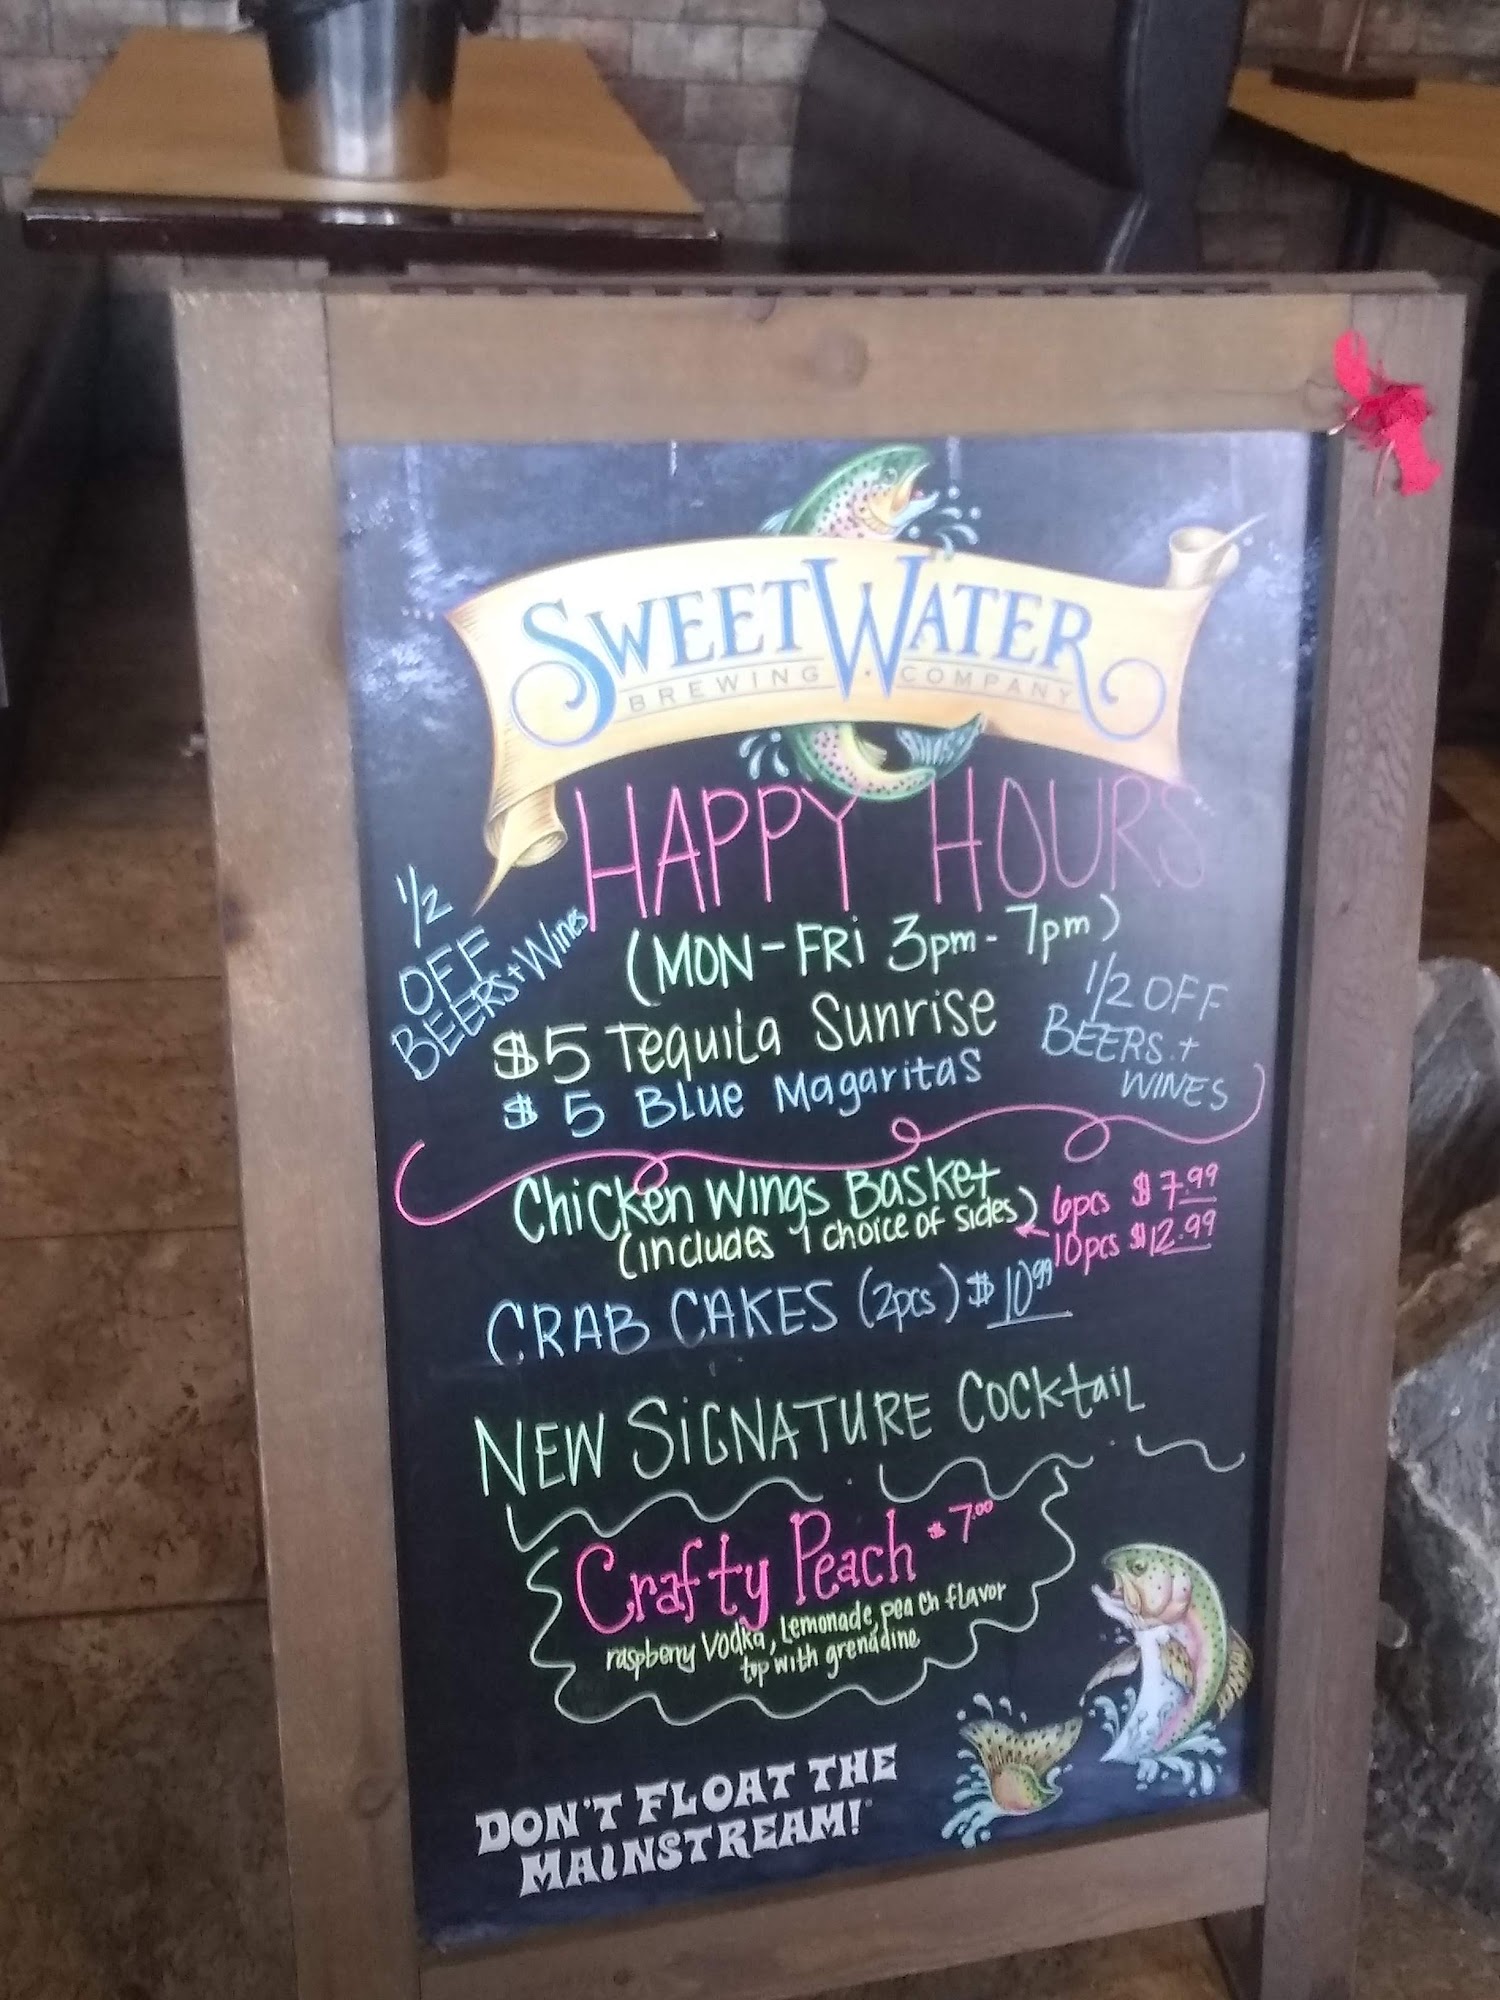 SWEETWATER
BREWING COMPANY
HAPPY HOURS
(MON-FRi 3pm-7pm)
1/2
OFF
BEERS+Wines
$5 Tequila Sunrise
$5 Blue Magaritas
1/2 OFF
BEERS.+
WINES
Chicken Wings Basket
(includes 1 choice of sides)
6pcs $7.99
10pcs $12.99
CRAB CAKES (2pcs) $10.99
NEW SiGNATURE Cocktail
Crafty Peach $7.00
raspberry Vodka, Lemonade, peach flavor
top with grenadine
DON'T FLOAT THE
MAINSTREAM!